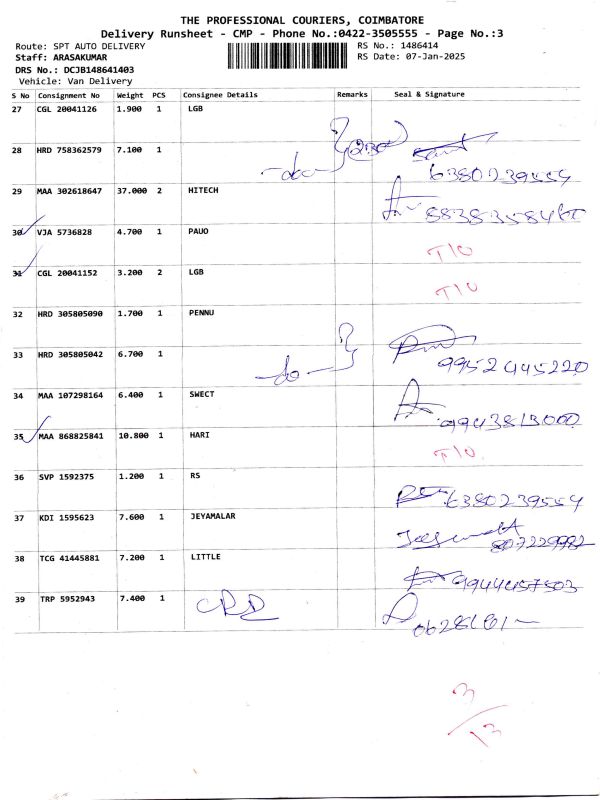 THE PROFESSIONAL COURIERS, COIMBATORE
Delivery Runsheet - CMP - Phone No.:0422-3505555 - Page No.:3
Route: SPT AUTO DELIVERY RS No.: 1486414
Staff: ARASAKUMAR RS Date: 07-Jan-2025
DRS No.: DCJB148641403
Vehicle: Van Delivery
S No Consignment No Weight PCS Consignee Details Remarks Seal & Signature
27 CGL 20041126 1.900 1 LGB
28 HRD 758362579 7.100 1 -do- 6380239554
29 MAA 302618647 37.000 2 HITECH
30 VJA 5736828 4.700 1 PAUO T/O
31 CGL 20041152 3.200 2 LGB T/O
32 HRD 305805090 1.700 1 PENNU
33 HRD 305805042 6.700 1 -do- 9952445220
34 MAA 107298164 6.400 1 SWECT 9943813000
35 MAA 868825841 10.800 1 HARI T/O
36 SVP 1592375 1.200 1 RS 6380239554
37 KDI 1595623 7.600 1 JEYAMALAR
38 TCG 41445881 7.200 1 LITTLE 9944457503
39 TRP 5952943 7.400 1
3/13